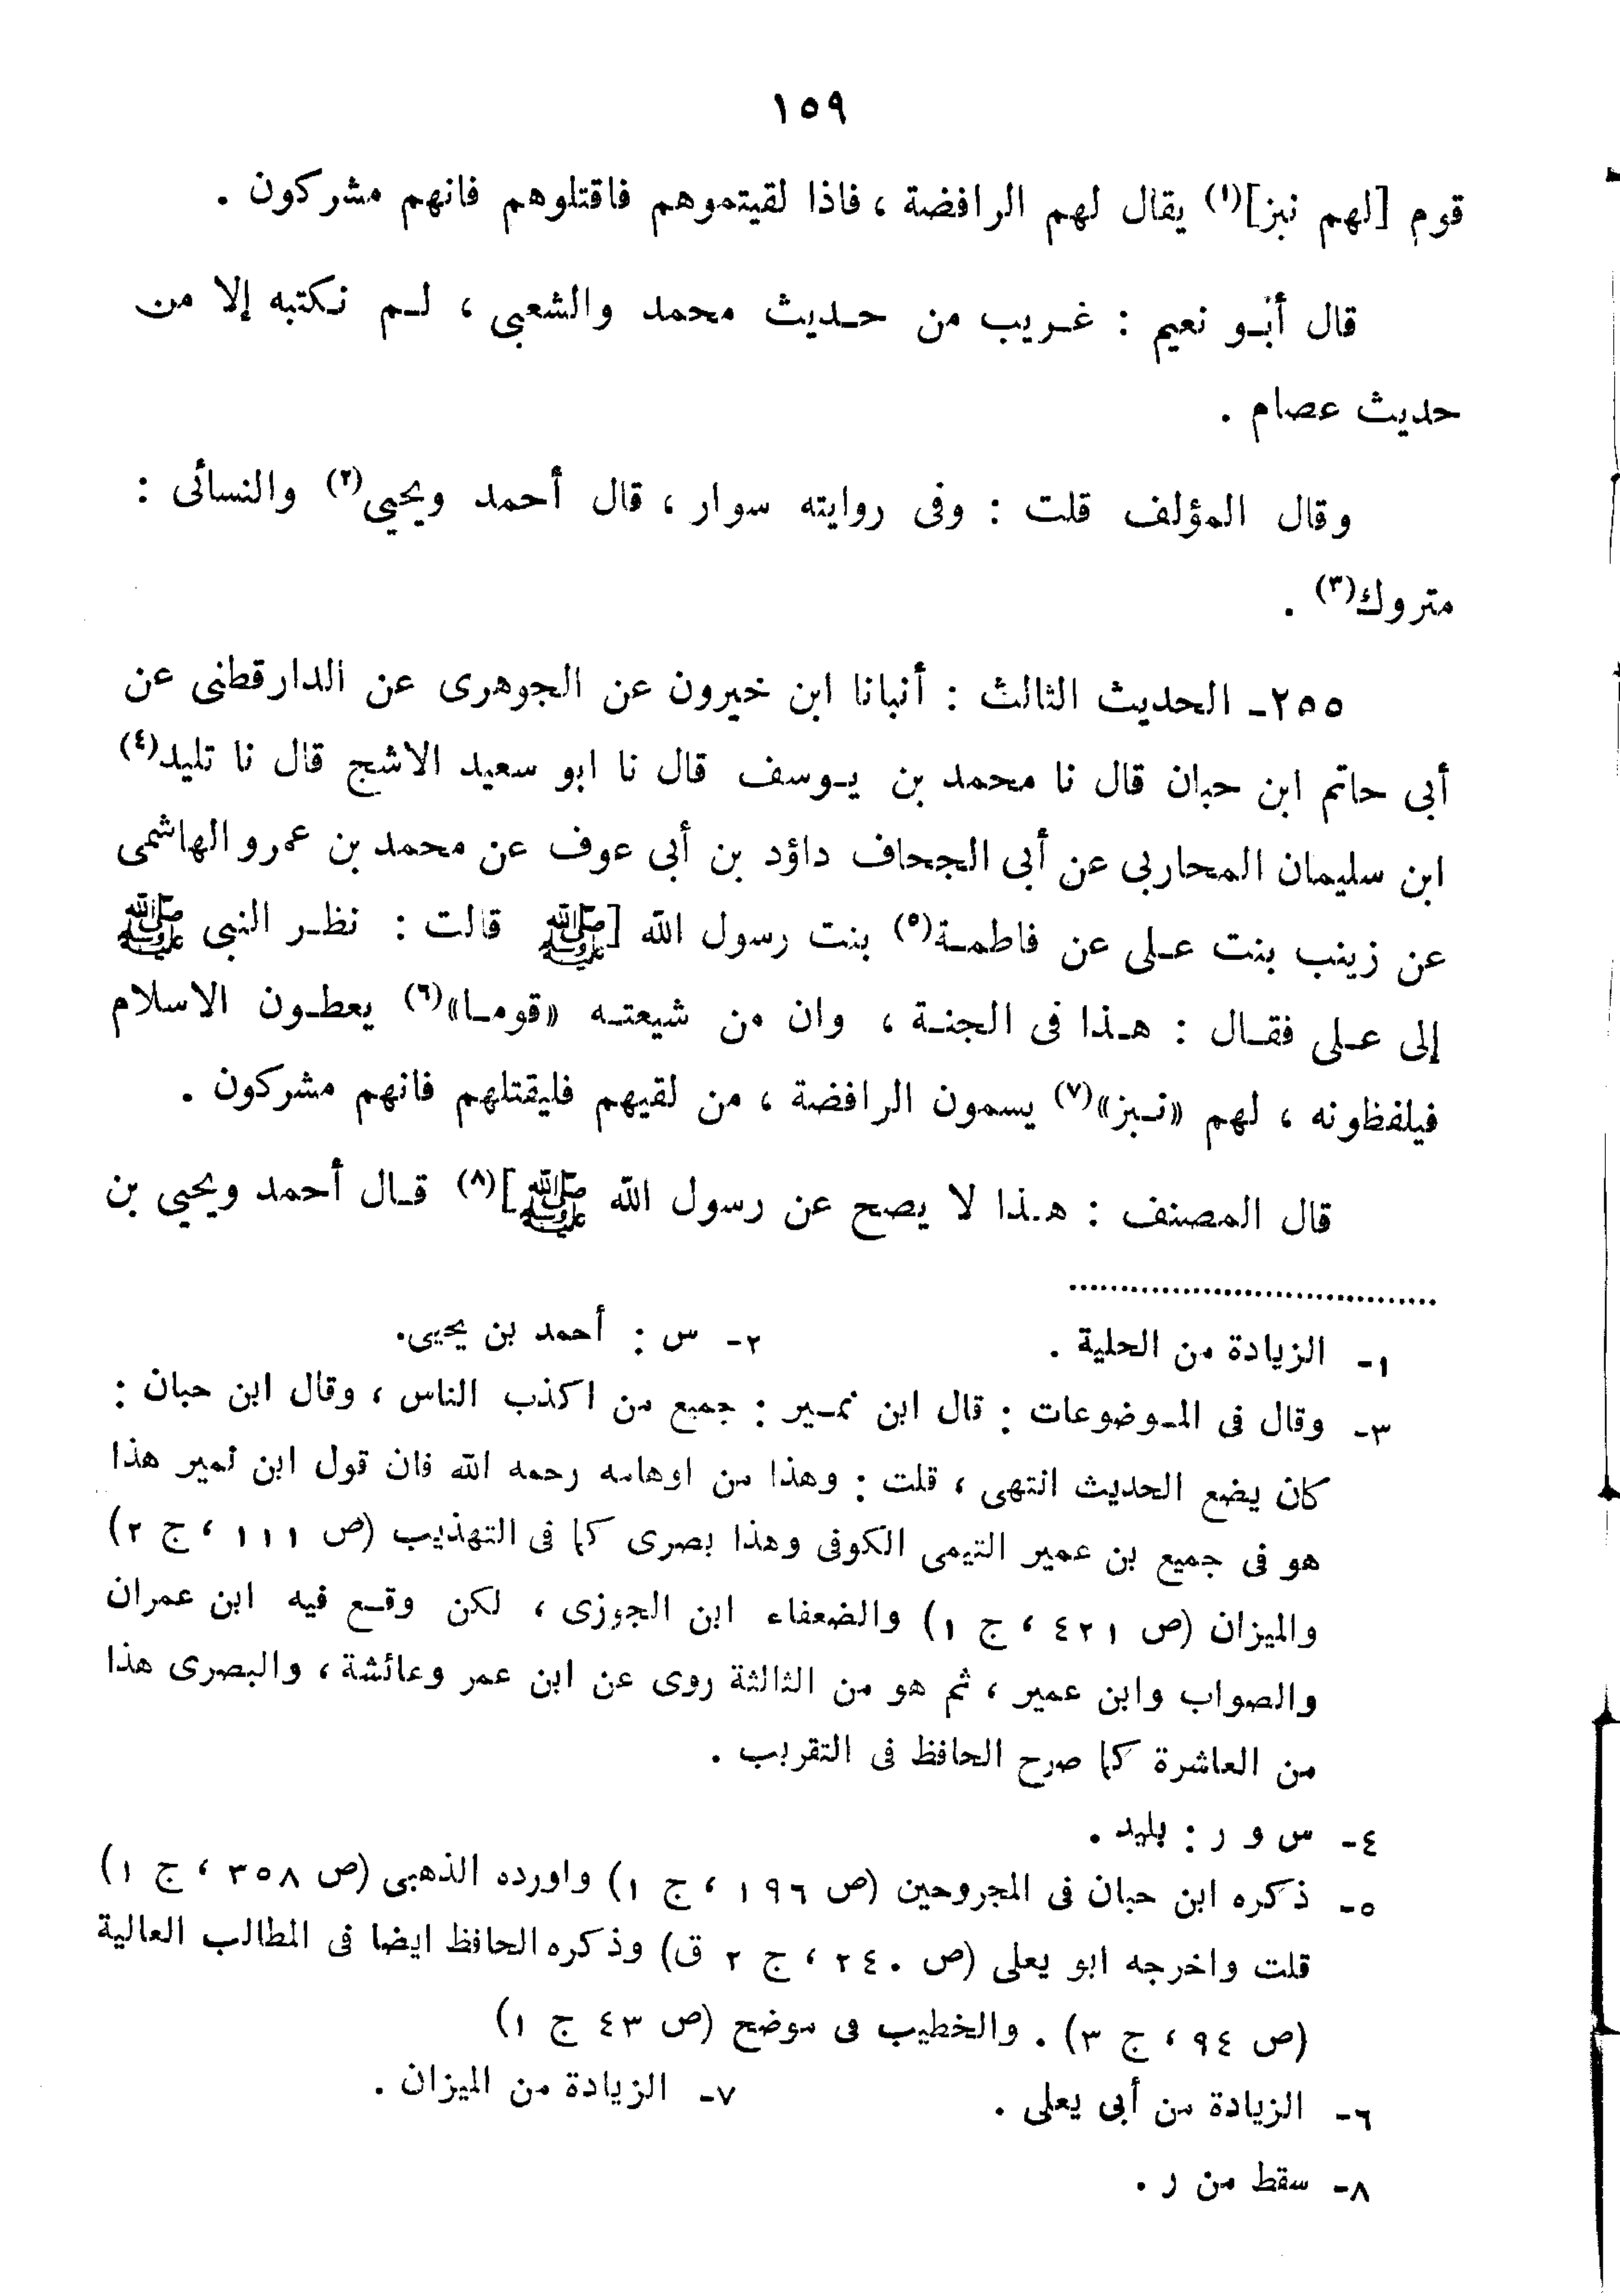 ١٥٩
قوم [لهم نبز](١) يقال لهم الرافضة ، فاذا لقيتموهم فاقتلوهم فانهم مشركون .
قال أبو نعيم : غريب من حديث محمد والشعبى ، لم نكتبه إلا من
حديث عصام .
وقال المؤلف قلت : وفى روايته سوار ، قال أحمد ويحيى(٢) والنسائى :
متروك(٣) .
٢٥٥- الحديث الثالث : أنبانا ابن خيرون عن الجوهرى عن الدارقطنى عن
أبى حاتم ابن حبان قال نا محمد بن يوسف قال نا ابو سعيد الاشج قال نا تليد(٤)
ابن سليمان المحاربى عن أبى الجحاف داؤد بن أبى عوف عن محمد بن عمرو الهاشمى
عن زينب بنت على عن فاطمة(٥) بنت رسول الله [ﷺ قالت : نظر النبى ﷺ
إلى على فقال : هذا فى الجنة ، وان من شيعته «قوما»(٦) يعطون الاسلام
فيلفظونه ، لهم «نبز»(٧) يسمون الرافضة ، من لقيهم فليقتلهم فانهم مشركون .
قال المصنف : هذا لا يصح عن رسول الله ﷺ](٨) قال أحمد ويحيى بن
١- الزيادة من الحلية . ٢- س : أحمد بن يحيى.
٣- وقال فى الموضوعات : قال ابن نمير : جميع من اكذب الناس ، وقال ابن حبان :
كان يضع الحديث انتهى ، قلت : وهذا من اوهامه رحمه الله فان قول ابن نمير هذا
هو فى جميع بن عمير التيمى الكوفى وهذا بصرى كما فى التهذيب (ص ١١١ ، ج ٢)
والميزان (ص ٤٢١ ، ج ١) والضعفاء ابن الجوزى ، لكن وقع فيه ابن عمران
والصواب وابن عمير ، ثم هو من الثالثة روى عن ابن عمر وعائشة ، والبصرى هذا
من العاشرة كما صرح الحافظ فى التقريب .
٤- س و ر : بليد .
٥- ذكره ابن حبان فى المجروحين (ص ١٩٦ ، ج ١) واورده الذهبى (ص ٣٥٨ ، ج ١)
قلت واخرجه ابو يعلى (ص ٢٤٠ ، ج ٢ ق) وذكره الحافظ ايضا فى المطالب العالية
(ص ٩٤ ، ج ٣) . والخطيب فى موضح (ص ٤٣ ج ١)
٦- الزيادة من أبى يعلى . ٧- الزيادة من الميزان .
٨- سقط من ر .